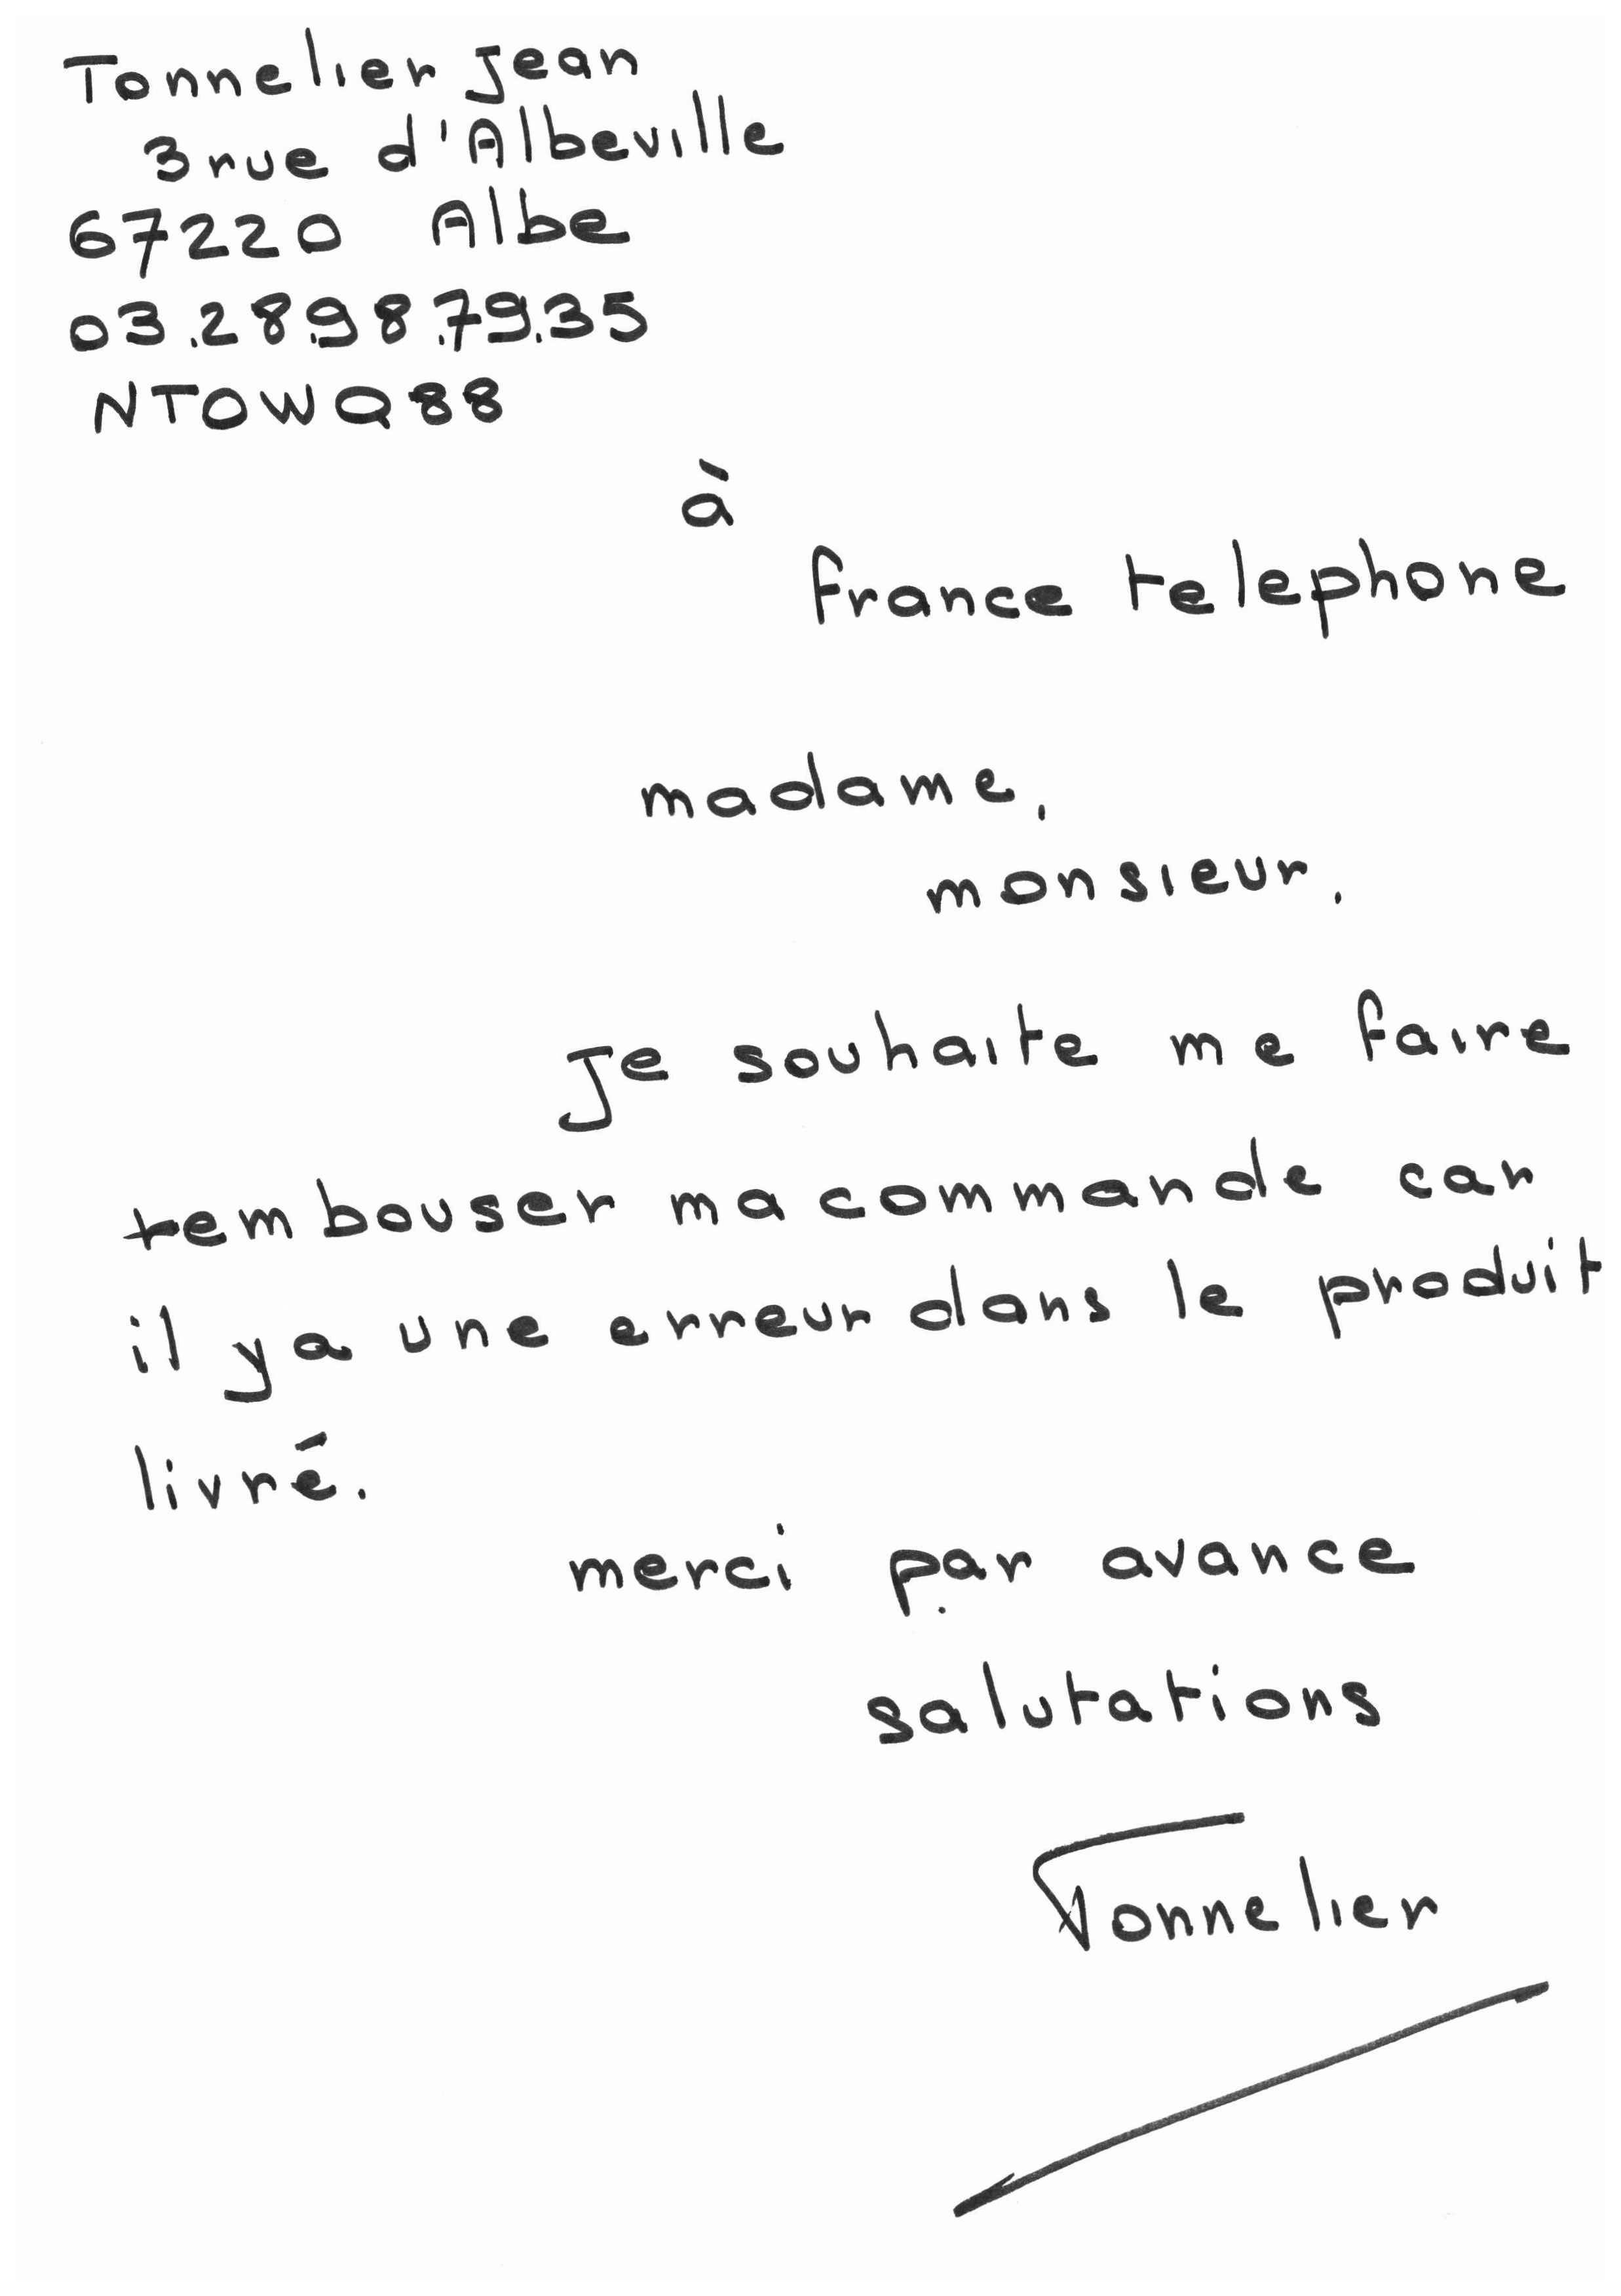 Tonnelier Jean
3 rue d'Albeville
67220 Albe
03.28.98.79.35
NTOWQ88
à
france telephone
madame,
monsieur,
Je souhaite me faire
rembouser ma commande car
il y a une erreur dans le produit
livré.
merci par avance
salutations
Tonnelier